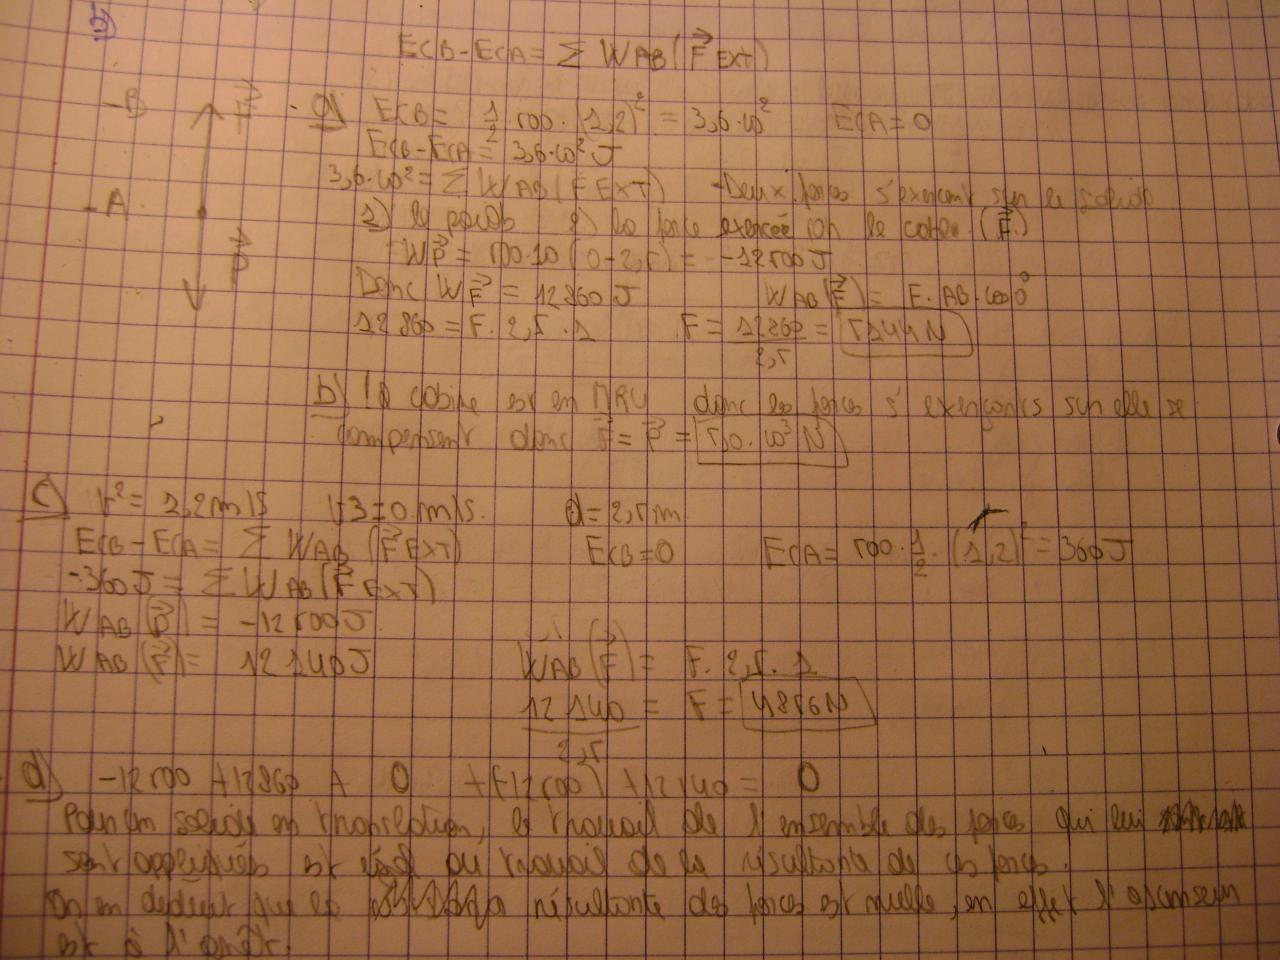 2)
ECB-ECA = Σ WAB (F⃗ EXT)
-B
F⃗
- a) ECB = 1/2 500 · (1,2)² = 3,6·10² ECA = 0
ECB-ECA = 3,6·10² J
3,6·10² = Σ WAB (F⃗ EXT) -Deux forces s'exercent sur le solide
-A
1) le poids 2) la force exercée par le cable (F⃗)
P⃗
WP⃗ = 500·10 (0-2,5) = -12500J
Donc WF⃗ = 12860J WAB(F⃗) = F. AB·cos0°
12860 = F. 2,5 . 1 F = 12860/2,5 = 5144N
b) la cabine est en MRU donc les forces s'exerçants sur elle se
compensent donc F⃗ = P⃗ = 5,0·10³ N
c) V2 = 1,2m/s V3=0 m/s. d=2,5m
ECB-ECA = Σ WAB (F⃗ EXT) ECB=0 ECA = 500·1/2·(1,2)² = 360J
-360J = Σ WAB (F⃗ EXT)
WAB (P⃗) = -12500J
WAB (F⃗) = 12140J WAB (F⃗) = F. 2,5. 1
12140/2,5 = F = 4856N
d) -12500 +12860 + 0 +(-12500) +12140 = 0
Pour un solide en translation, le travail de l'ensemble des forces qui lui
sont appliquées est égal au travail de la résultante de ces forces.
On en deduit que la résultante des forces est nulle, en effet l'ascenseur
est à l'arrêt.